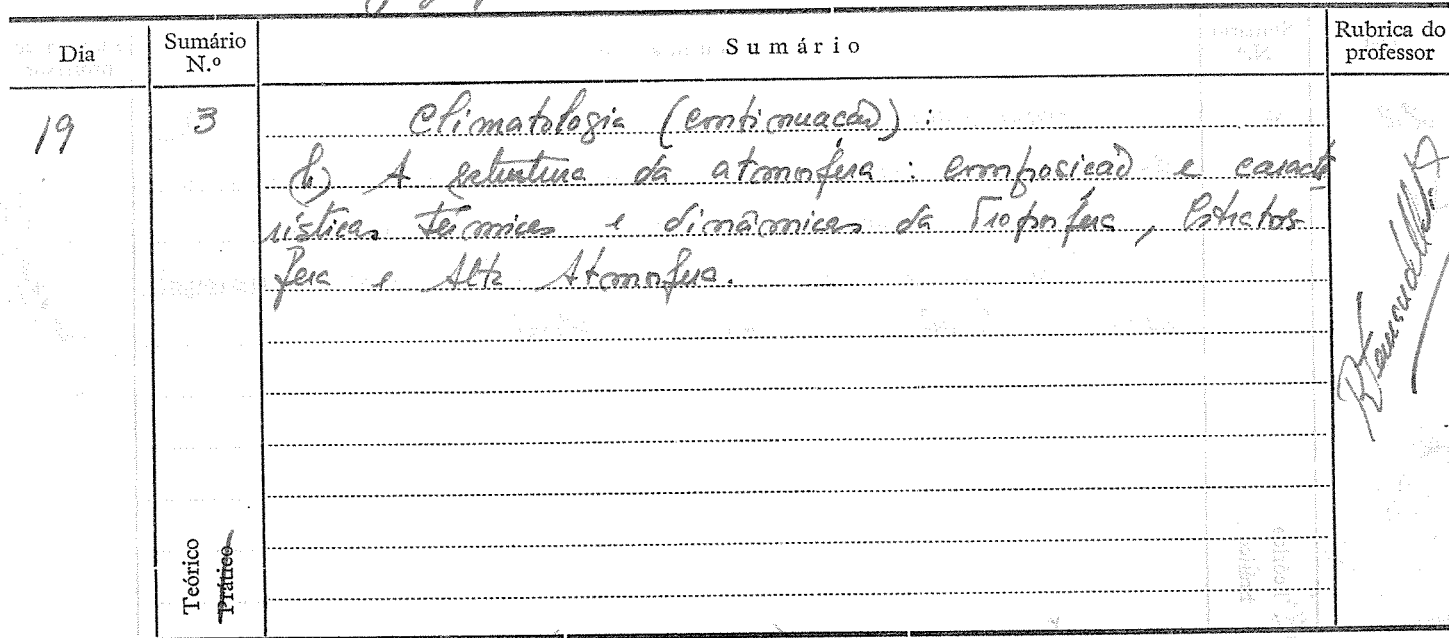 Dia
Sumário N.º
Sumário
Rubrica do professor
19
3
Climatologia (continuação) :
b) A estrutura da atmosfera : composição e caracte
rísticas térmicas e dinâmicas da Troposfera, Estratos-
fera e Alta Atmosfera.
Teórico
Prático